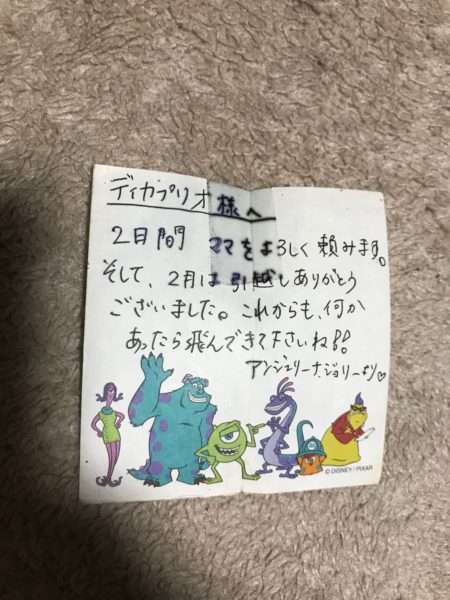 ディカプリオ様へ
2日間 ママをよろしく頼みます。
そして、2月は引越しありがとう
ございました。これからも、何か
あったら飛んできて下さいね!!
アンジェリーナ・ジョリーより♡
© DISNEY/PIXAR